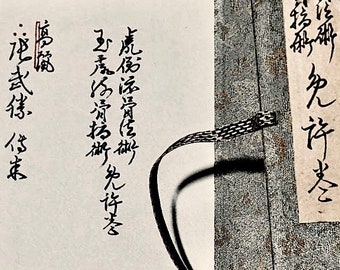 法術
骨指術 免許巻
虎倒流骨法術
玉虎流骨指術 免許巻
武勝 傳来